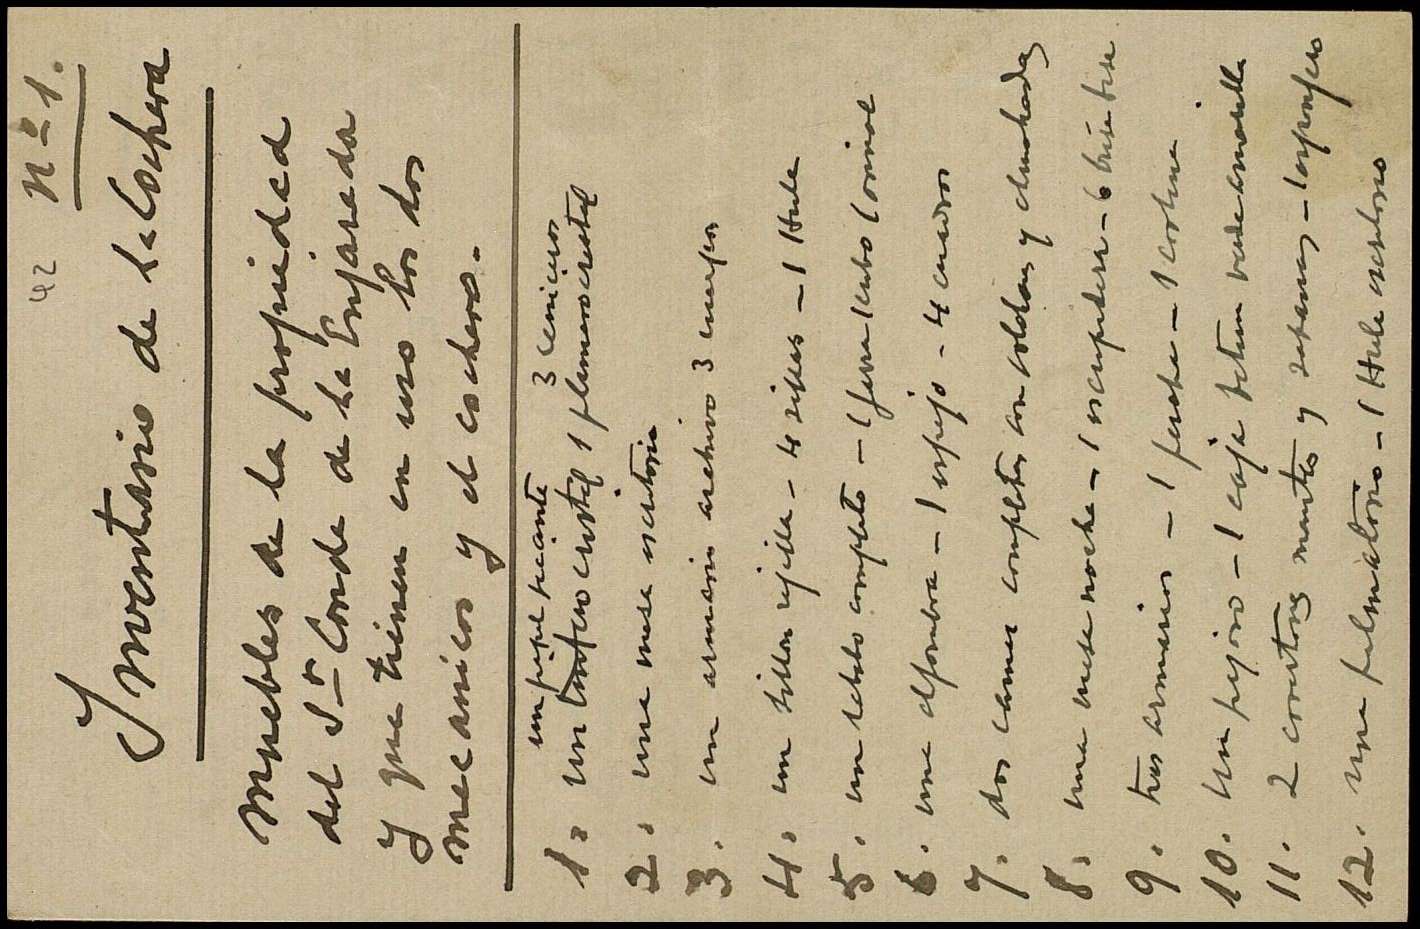 42 Nº 1.
Inventario de la Cochera
Muebles de la propiedad
del Sr Conde de la Enjarada
y que tienen en uso los dos
mecanicos y el cochero.
un pisapapel 3 ceniceros
1. un tintero cristal 1 plumero cristal
2. una mesa escritorio
3. un armario archivo 3 cuerpos
4. un sillon rejilla - 4 sillas - 1 Hule
5. un lababo completo - 1 jarra 1 cubo 1 orinal
6. una alfombra - 1 espejo - 4 cuadros
7. dos camas completas con colchas y almohadas
8. una mesa noche - 1 escupidera - 6
9. tres armarios - 1 percha - 1 cortina
10. Un - 1 caja
11. 2 mantas y sabanas - 1
12. una palmatoria - 1 Hule escritorio